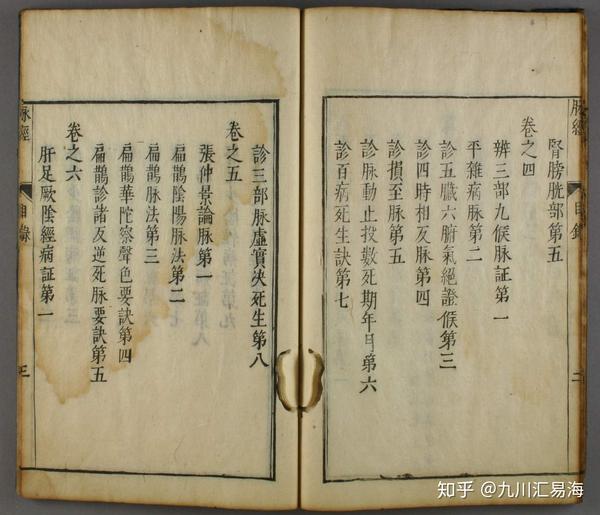 脉經
目録
二
腎膀胱部第五
卷之四
辨三部九候脉証第一
平雜病脉第二
診五臟六腑氣絕證候第三
診四時相反脉第四
診損至脉第五
診脉動止投數死期年日第六
診百病死生訣第七
診三部脉虛實决死生第八
卷之五
張仲景論脉第一
扁鵲陰陽脉法第二
扁鵲脉法第三
扁鵲華陀察聲色要訣第四
扁鵲診諸反逆死脉要訣第五
卷之六
肝足厥陰經病証第一
脉經
目録
三
知乎 @九川汇易海